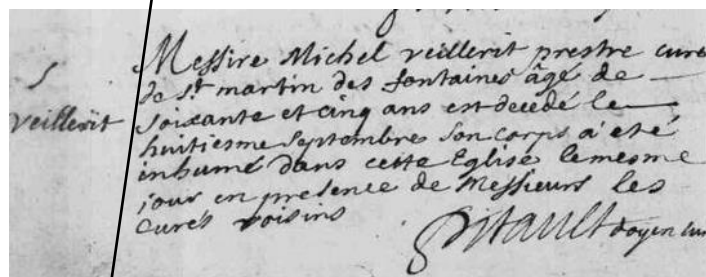 S
veillerit
Messire Michel veillerit prestre curé
de st martin des fontaines âgé de
soixante et cinq ans est decedé le
huitiesme septembre son corps a eté
inhumé dans cette Eglise le mesme
jour en presence de Messieurs les
curés voisins
doyen cur